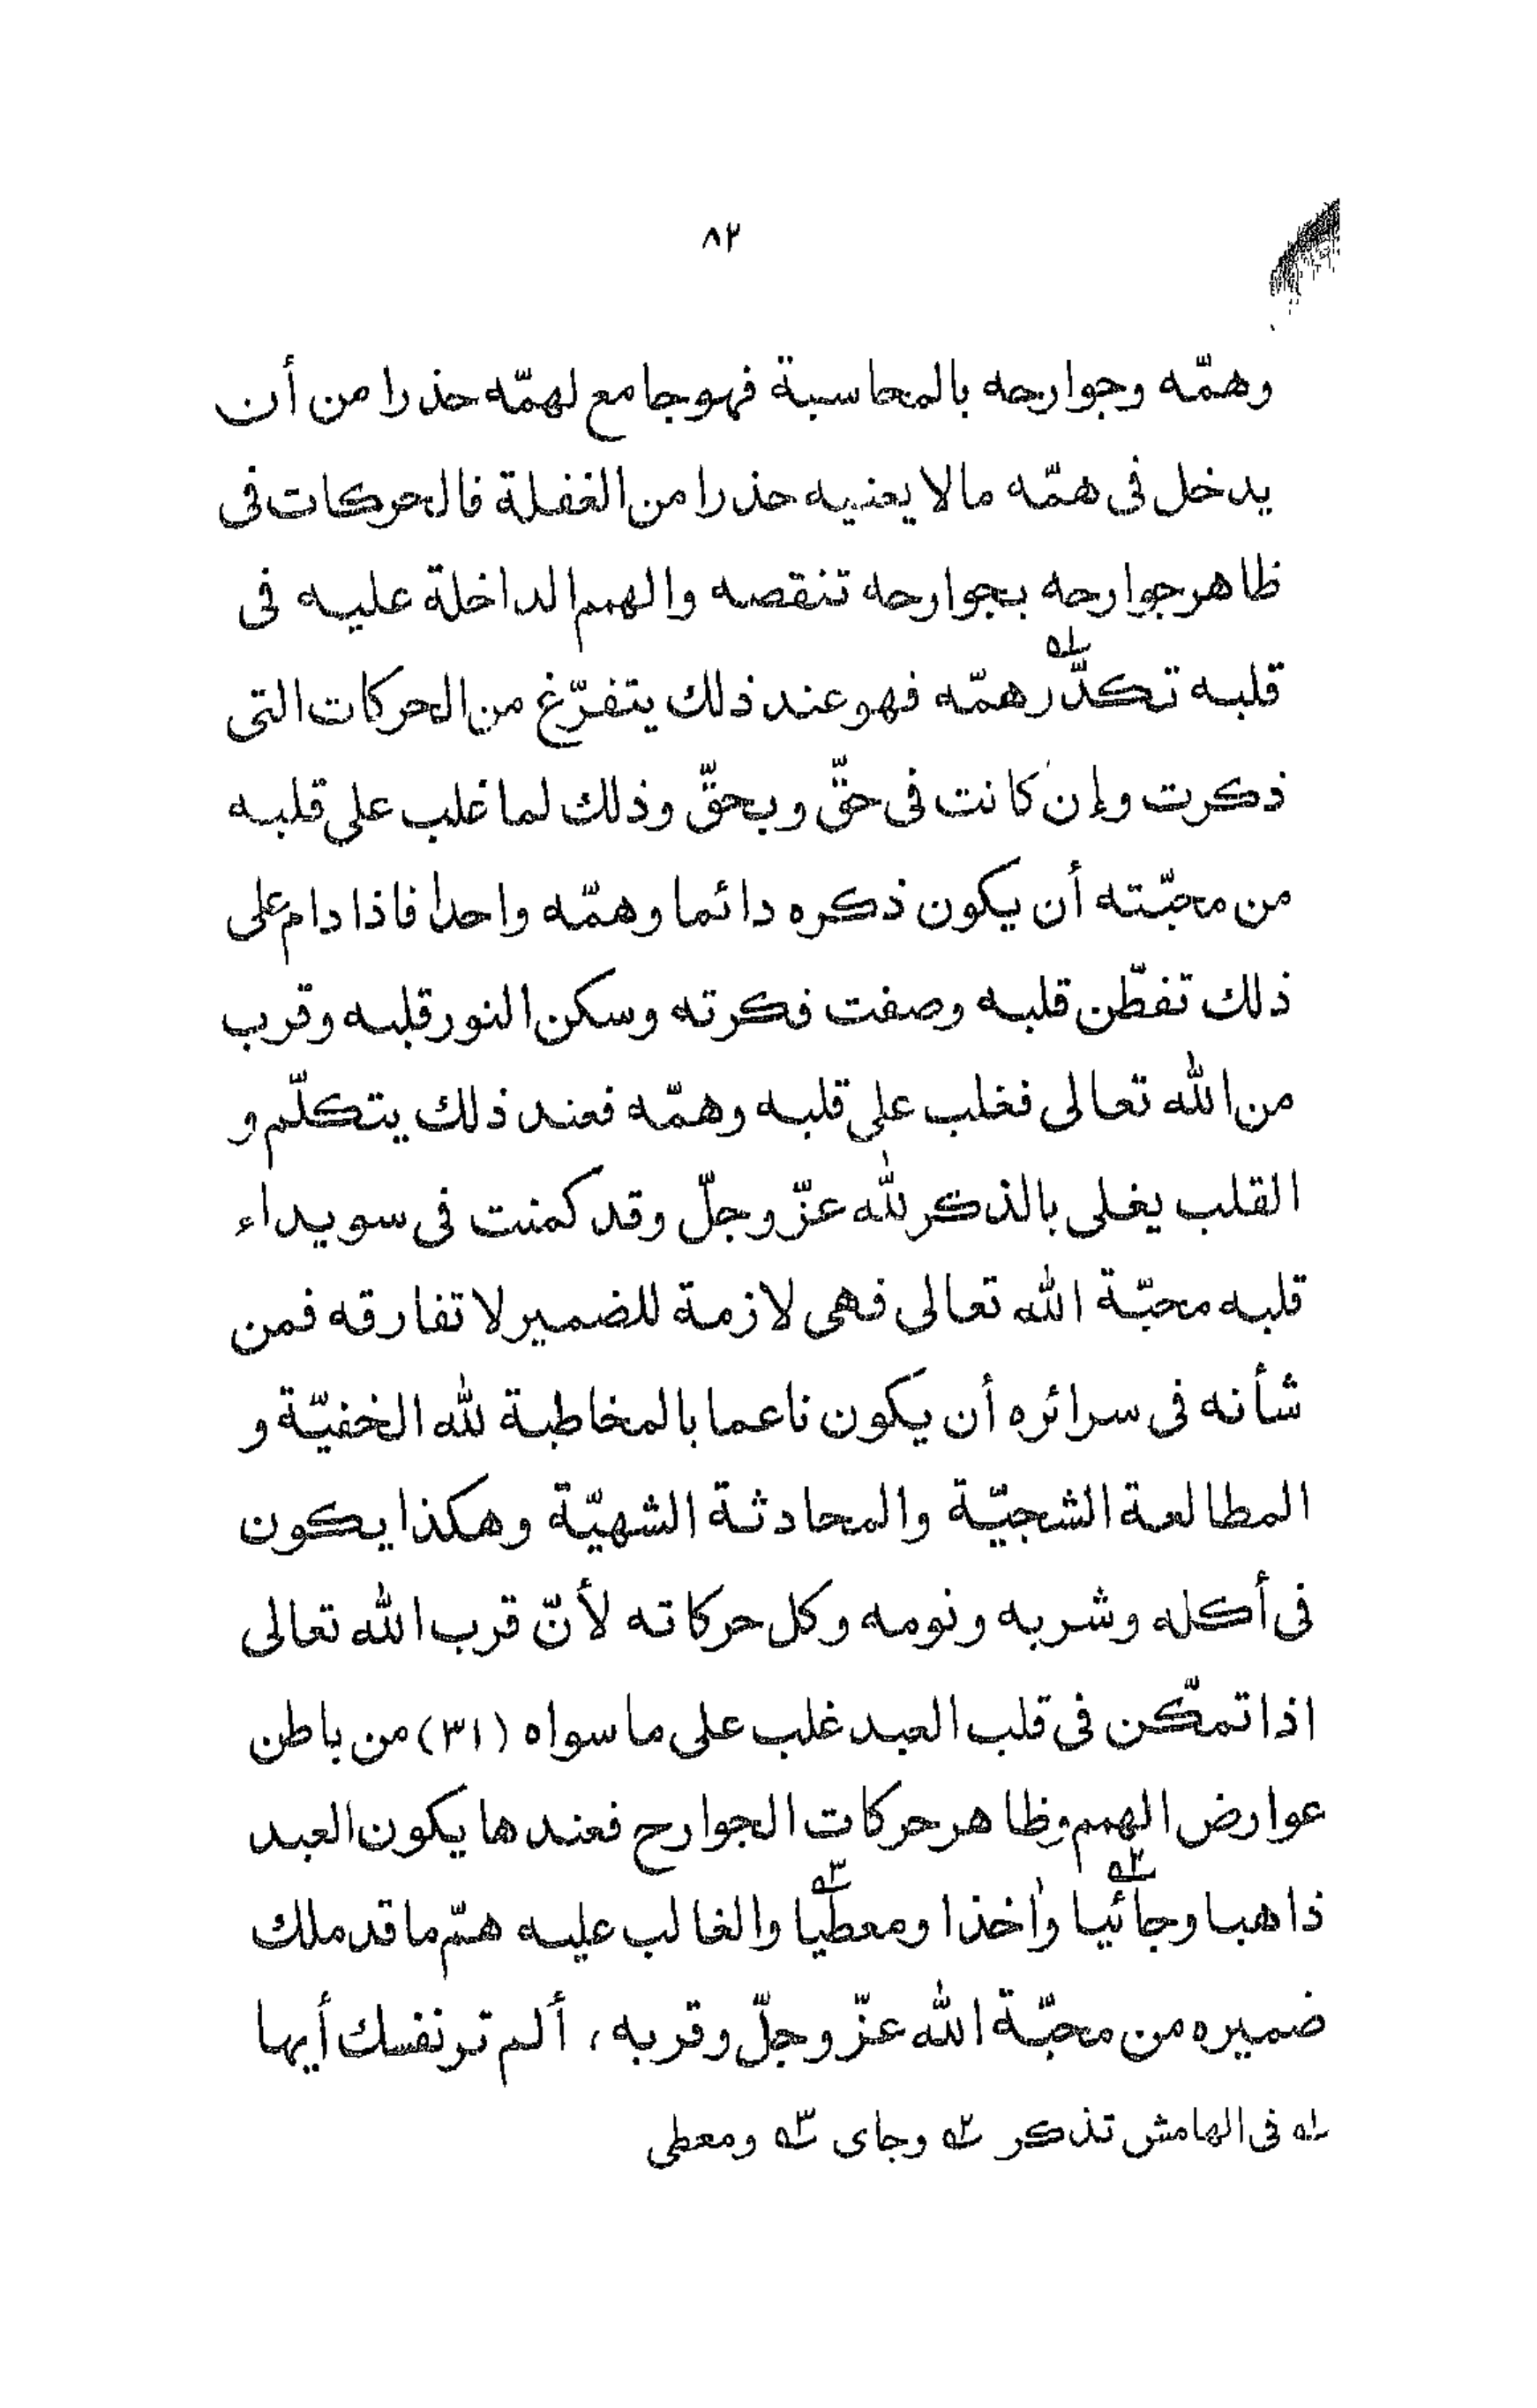 ٨٢
وهمّه وجوارحه بالمحاسبة فهو جامع لهمّه حذرا من أن
يدخل فى همّه مالا يعنيه حذرا من الغفلة فالحركات فى
ظاهر جوارحه بجوارحه تنقصه والهمم الداخلة عليه فى
قلبه تكدّر له١ همّه فهو عند ذلك يتفرّغ من الحركات التى
ذكرت وإن كانت فى حقّ وبحقّ وذلك لما غلب على قلبه
من محبّته أن يكون ذكره دائما وهمّه واحدا فاذا دام على
ذلك تفطّن قلبه وصفت فكرته وسكن النور قلبه وقرب
من الله تعالى فغلب على قلبه وهمّه فعند ذلك يتكلّم و
القلب يغلى بالذكر لله عزّ وجلّ وقد كمنت فى سويداء
قلبه محبّة الله تعالى فهى لازمة للضمير لا تفارقه فمن
شأنه فى سرائره أن يكون ناعما بالمخاطبة لله الخفيّة و
المطالعة الشجيّة والمحادثة الشهيّة وهكذا يكون
فى أكله وشربه ونومه وكل حركاته لأنّ قرب الله تعالى
اذا تمكّن فى قلب العبد غلب على ما سواه (٣١) من باطن
عوارض الهمم وظاهر حركات الجوارح فعندها يكون العبد
ذاهبا وجائيا٢ واٰخذا ومعطيا٣ والغالب عليه همّ ما قد ملك
ضميره من محبّة الله عزّ وجلّ وقربه، ألم تر نفسك أيها
١ه فى الهامش تذكر ٢ه وجاى ٣ه ومعطى